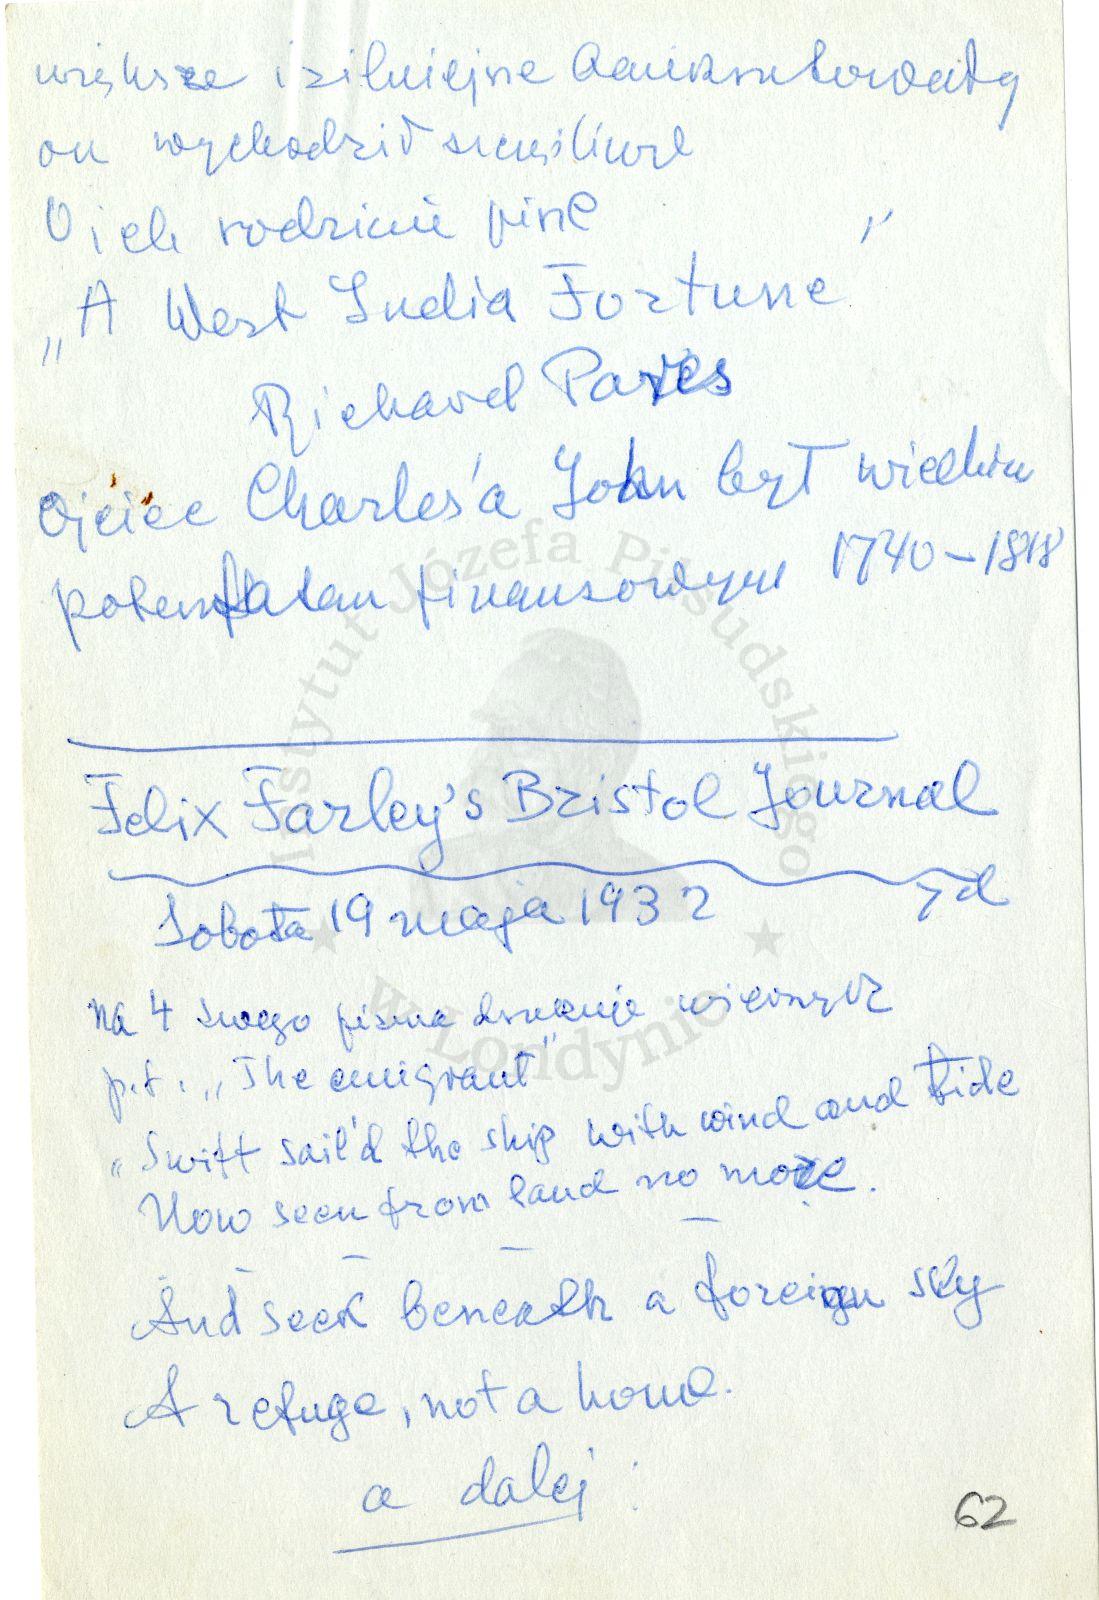 większe i silniejsze bankrutowały
on wychodził szczęśliwie
O ich rodzinie pisze
„A West India Fortune”
Richard Pares
Ojciec Charles'a John był wielkim
potentatem finansowym 1740–1818
Felix Farley's Bristol Journal
Sobota 19 maja 1932 7d
na 4 swego pisma drukuje wierszyk
p.t. „The emigrant”
„Swift sail'd the ship with wind and tide
Now seen from land no more.
And seek beneath a foreign sky
A refuge, not a home.
a dalej:
62
Instytut Józefa Piłsudskiego
w Londynie